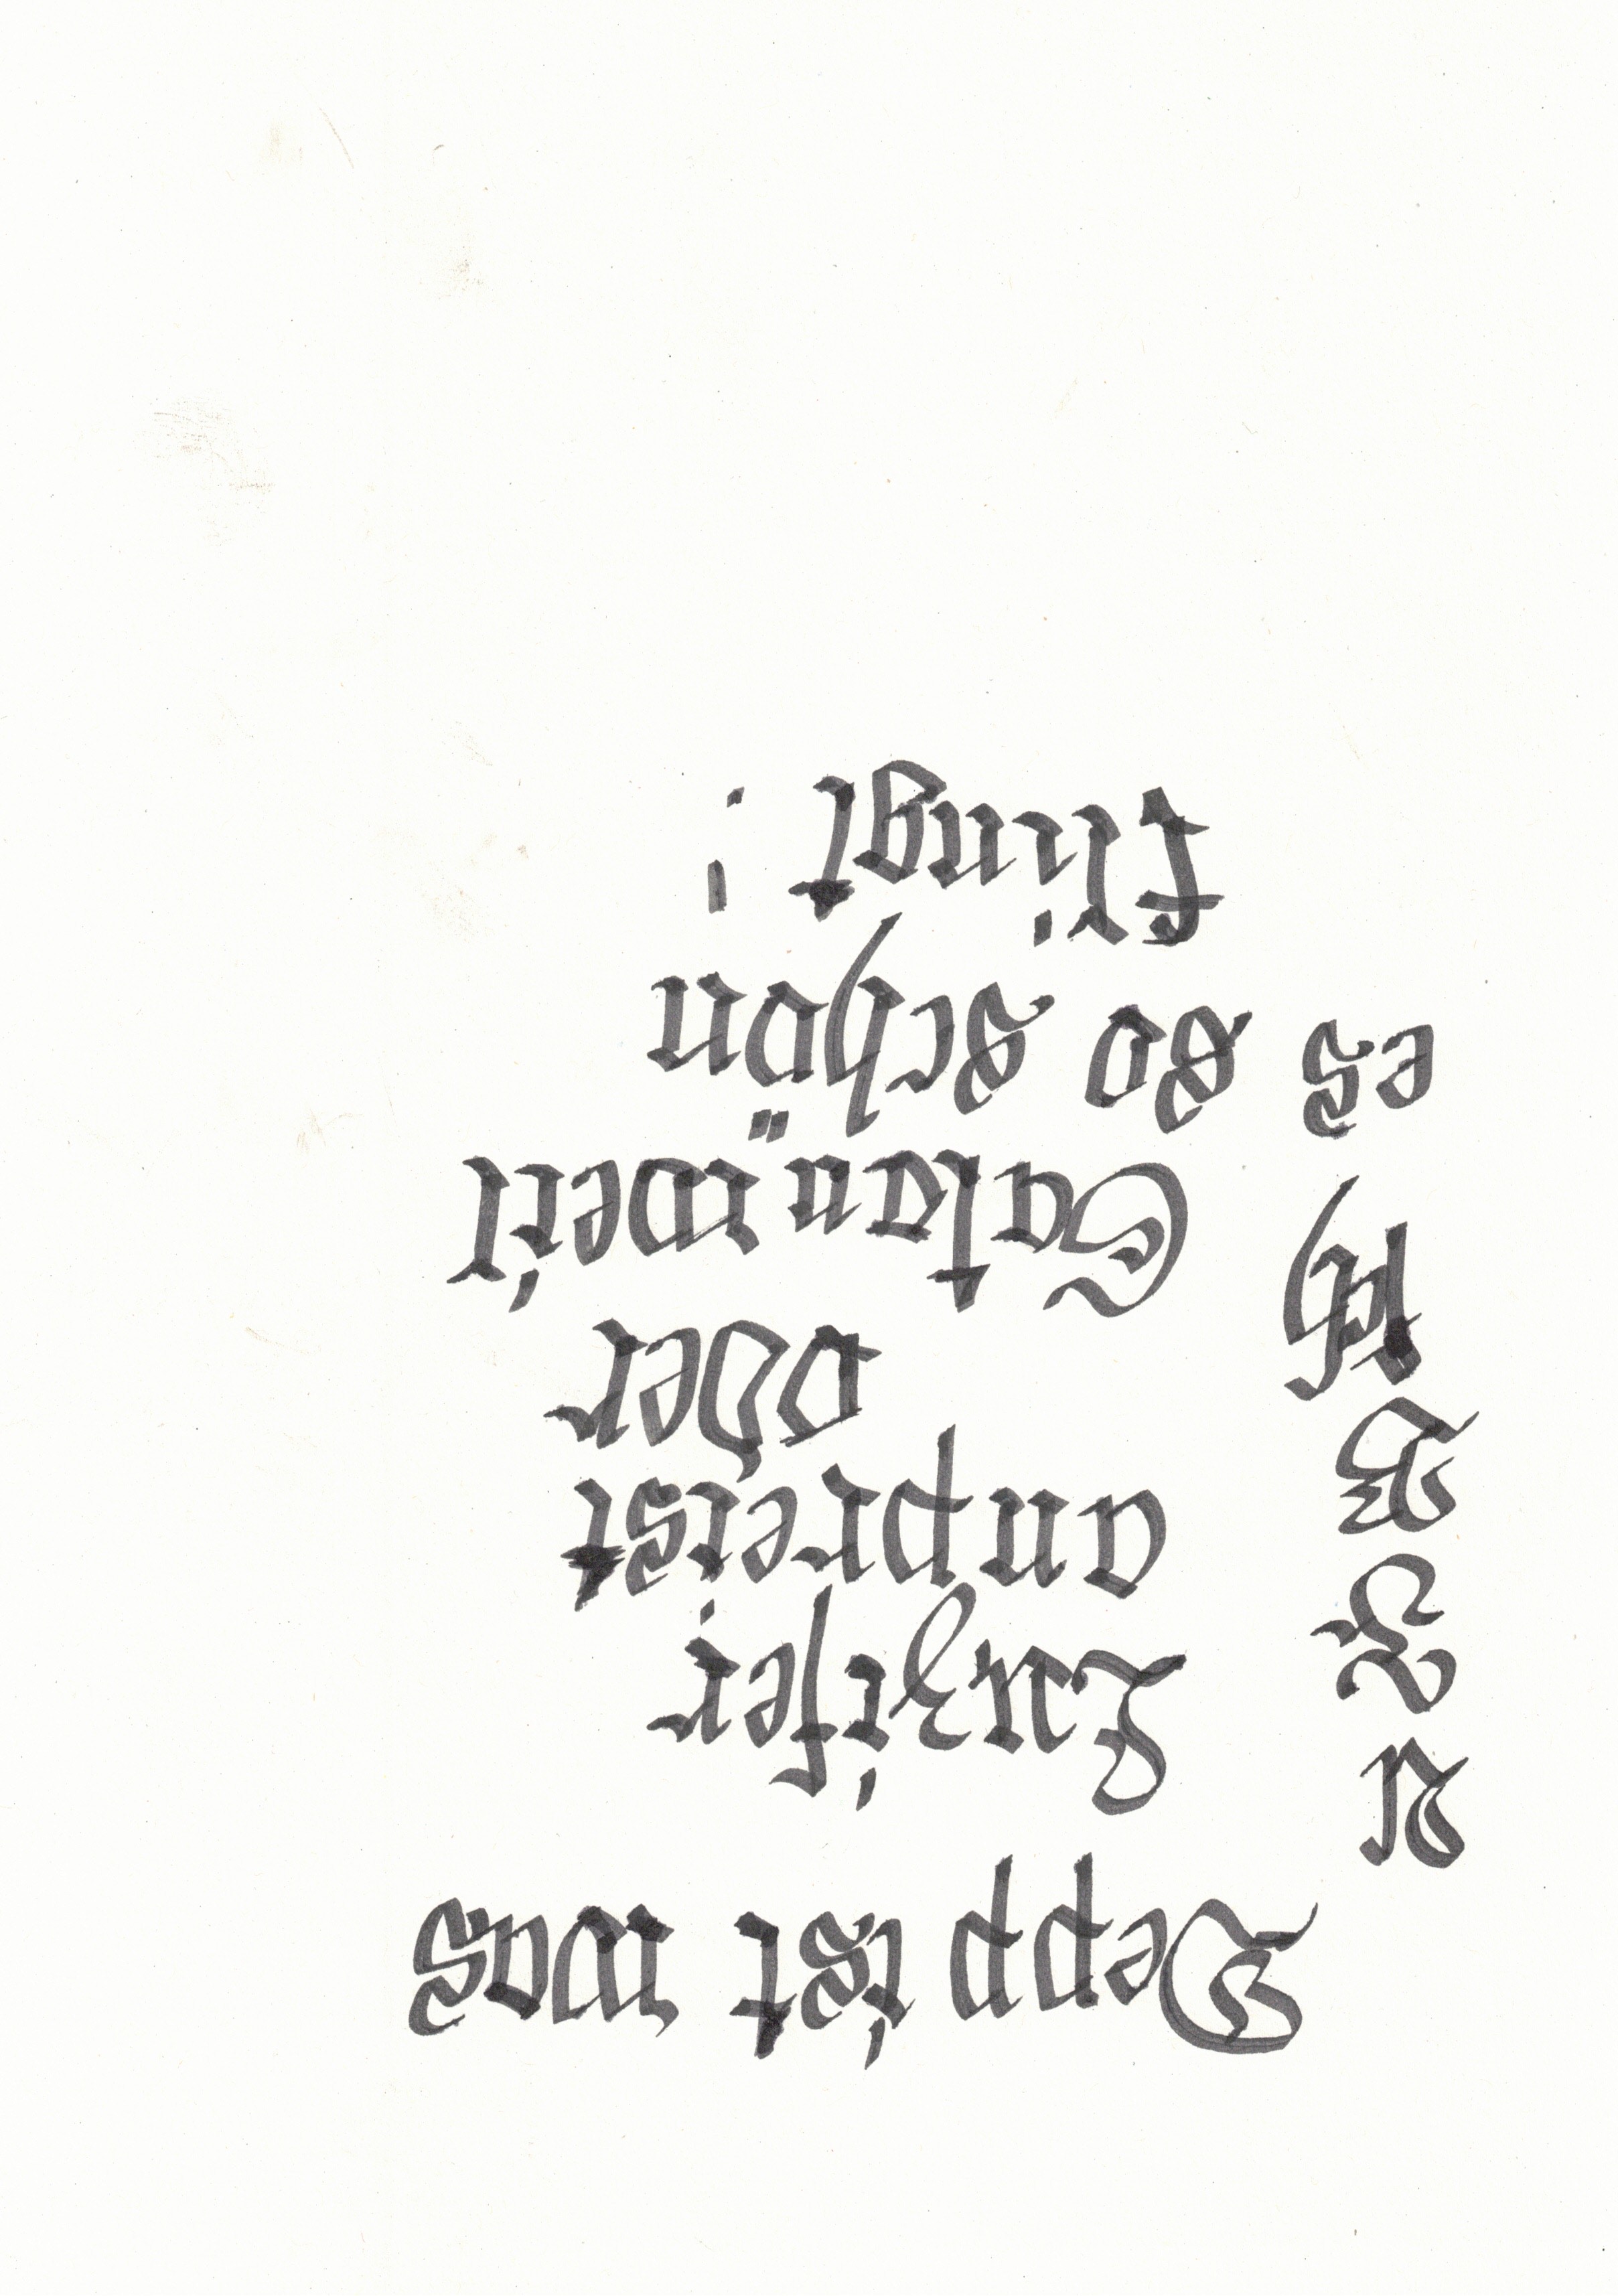 Depp ist was
Luzifer
anpreist
B oder
Satan weil
es so schön
klingt !